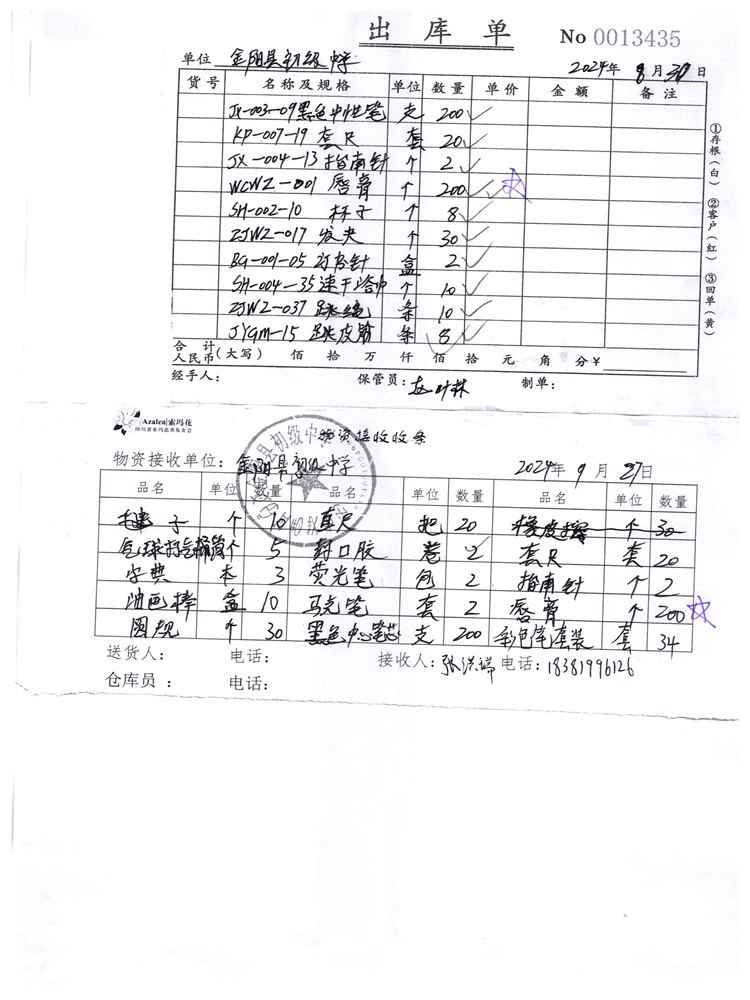 出 库 单
No 0013435
单位 金阳县初级中学 2024年 8月30日
货号 名称及规格 单位 数量 单价 金额 备注
JX-003-09黑色中性笔 支 200
KP-007-19 套尺 套 20
JX-004-13指南针 个 2
WCWZ-001 唇膏 个 200
SH-002-10 杯子 个 8
ZJWZ-017 发夹 个 30
BG-001-05订书针 盒 2
SH-004-35速干浴巾 个 10
ZJWZ-037 跳绳 条 10
JYGM-15 跳皮筋 条 8
合计
人民币(大写) 佰 拾 万 仟 佰 拾 元 角 分￥
经手人: 保管员: 制单:
①存根(白) ②客户(红) ③回单(黄)
Azalea|索玛花
物资接收收条
物资接收单位: 金阳县初级中学 2024年 9月27日
品名 单位 数量 品名 单位 数量 品名 单位 数量
毽子 个 10 直尺 把 20 橡皮擦 个 30
气球打气筒 个 5 封口胶 卷 2 套尺 套 20
字典 本 3 荧光笔 包 2 指南针 个 2
油画棒 盒 10 马克笔 套 2 唇膏 个 200
圆规 个 30 黑色中心笔芯 支 200 彩色笔套装 套 34
送货人: 电话: 接收人: 电话: 18381996126
仓库员: 电话: